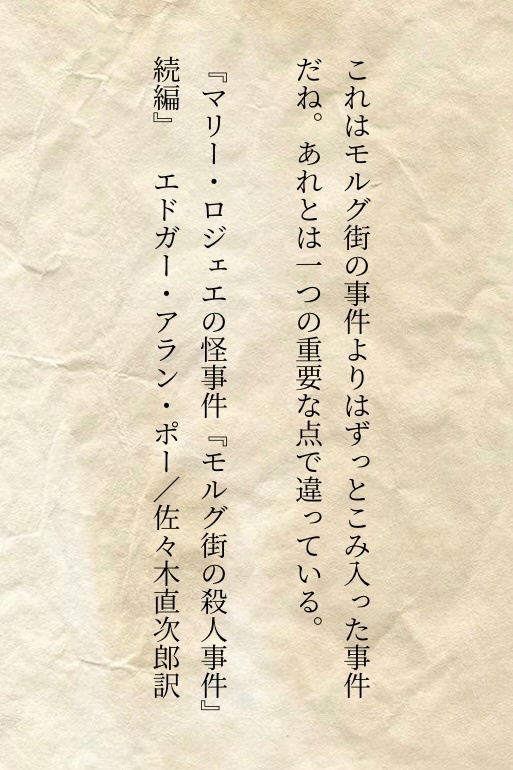 これはモルグ街の事件よりはずっとこみ入った事件
だね。あれとは一つの重要な点で違っている。
『マリー・ロジェエの怪事件『モルグ街の殺人事件』
続編』　エドガー・アラン・ポー／佐々木直次郎訳